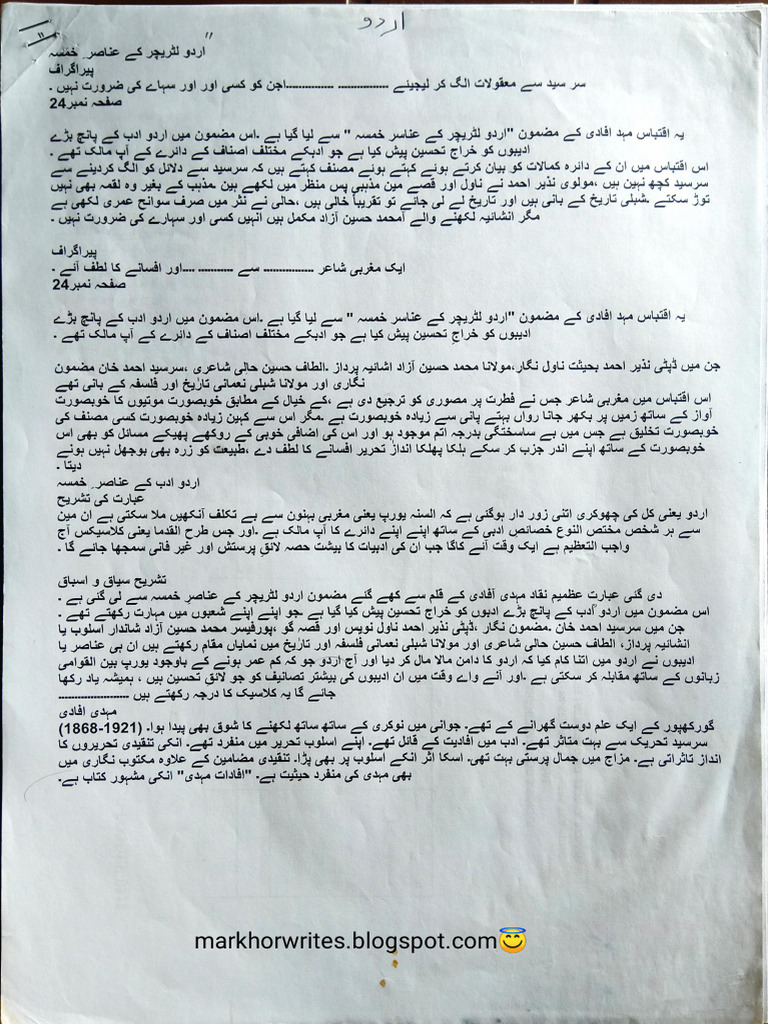 اردو
"
اا
اردو لٹریچر کے عناصرِ خمسہ
پیراگراف
سر سید سے معقولات الگ کر لیجیئے ............... ..............اجن کو کسی اور اور سہاے کی ضرورت نہیں ۔
صفحہ نمبر24
یہ اقتباس مہد افادی کے مضمون "اردو لٹریچر کے عناسر خمسہ " سے لیا گیا ہے ۔اس مضمون میں اردو ادب کے پانچ بڑے
ادیبوں کو خراج تحسین پیش کیا ہے جو ادبکے مختلف اصناف کے دائرے کے آپ مالک تھے ۔
اس اقتباس میں ان کے دائرہ کمالات کو بیان کرتے ہوئے کہتے ہوئے مصنف کہتے ہیں کہ سرسید سے دلائل کو الگ کردینے سے
سرسید کچھ نہین ہیں ،مولوی نذیر احمد نے ناول اور قصے مین مذہبی پس منظر میں لکھے ہین ۔مذہب کے بغیر وہ لقمہ بھی نہیں
توڑ سکتے ۔شبلی تاریخ کے بانی ہیں اور تاریخ لے لی جائے تو تقریباً خالی ہیں ،حالی نے نثر میں صرف سوانح عمری لکھی ہے
مگر انشائیہ لکھنے والے آمحمد حسین آزاد مکمل ہیں انہیں کسی اور سہارے کی ضرورت نہیں ۔
پیراگراف
ایک مغربی شاعر ............... سے ........... ....اور افسانے کا لطف آئے ۔
صفحہ نمبر24
یہ اقتباس مہد افادی کے مضمون "اردو لٹریچر کے عناسر خمسہ " سے لیا گیا ہے ۔اس مضمون میں اردو ادب کے پانچ بڑے
ادیبوں کو خراجِ تحسین پیش کیا ہے جو ادبکے مختلف اصناف کے دائرے کے آپ مالک تھے ۔
جن میں ڈپٹی نذیر احمد بحیثت ناول نگار،مولانا محمد حسین آزاد اشائیہ پرداز ۔الطاف حسین حالی شاعری ،سرسید احمد خان مضمون
نگاری اور مولانا شبلی نعمانی تاریخ اور فلسفہ کے بانی تھے
اس اقتباس میں مغربی شاعر جس نے فطرت پر مصوری کو ترجیع دی ہے ،کے خیال کے مطابق خوبصورت موتیوں کا خوبصورت
آواز کے ساتھ زمیں پر بکھر جانا رواں بہتے پانی سے زیادہ خوبصورت ہے ۔مگر اس سے کہین زیادہ خوبصورت کسی مصنف کی
خوبصورت تخلیق ہے جس میں بے ساسختگی بدرجہ اتم موجود ہو اور اس کی اضافی خوبی کے روکھے پھیکے مسائل کو بھی اس
خوبصورت کے ساتھ اپنے اندر جزب کر سکے ہلکا پھلکا انداز تحریر افسانے کا لطف دے ،طبیعت کو زرہ بھی بوجھل نہیں ہونے
دیتا ۔
اردو ادب کے عناصرِ خمسہ
عبارت کی تشریح
اردو یعنی کل کی چھوکری اتنی زور دار ہوگئی ہے کہ السنہ یورپ یعنی مغربی بہنون سے بے تکلف آنکھیں ملا سکتی ہے ان مین
سے ہر شخص مختص النوع خصائص ادبی کے ساتھ اپنے اپنے دائرے کا آپ مالک ہے ۔اور جس طرح القدما یعنی کلاسیکس آج
واجب التعظیم ہے ایک وقت آئے کاگا جب ان کی ادبیات کا بیشت حصہ لائقِ پرستش اور غیر فانی سمجھا جائے گا ۔
تشریح سیاق و اسباق
دی گئی عبارت عظمیم نقاد مہدی آفادی کے قلم سے کھے گئے مضمون اردو لٹریچر کے عناصرِ خمسہ سے لی گئی ہے ۔
اس مضمون میں اردو ادب کے پانچ بڑے ادبوں کو خراج تحسین پیش کیا گیا ہے ۔جو اپنے اپنے شعبوں میں مہارت رکھتے تھے ۔
جن میں سرسید احمد خان ۔مضمون نگار ،ڈپٹی نذیر احمد ناول نویس اور قصہ گو ،پورفیسر محمد حسین آزاد شاندار اسلوب یا
انشائیہ پرداز، الطاف حسین حالی شاعری اور مولانا شبلی نعمانی فلسفہ اور تاریخ میں نمایاں مقام رکھتے ہیں ان ہی عناصر یا
ادیبوں نے اردو میں اتنا کام کیا کہ اردو کا دامن مالا مال کر دیا اور آج اردو جو کہ کم عمر ہونے کے باوجود یورپ بین القوامی
زبانوں کے ساتھ مقابلہ کر سکتی ہے ۔اور آنے واے وقت میں ان ادیبوں کی بیشتر تصانیف کو جو لائقِ تحسین ہیں ، ہمیشہ یاد رکھا
جائے گا یہ کلاسیک کا درجہ رکھتے ہیں .....................
مہدی افادی
گورکھپور کے ایک علم دوست گھرانے کے تھے۔ جوانی میں نوکری کے ساتھ ساتھ لکھنے کا شوق بھی پیدا ہوا۔ (1868-1921)
سرسید تحریک سے بہت متاثر تھے۔ ادب میں افادیت کے قائل تھے۔ اپنے اسلوب تحریر میں منفرد تھے۔ انکی تنقیدی تحریروں کا
انداز تاثراتی ہے۔ مزاج میں جمال پرستی بہت تھی۔ اسکا اثر انکے اسلوب پر بھی پڑا۔ تنقیدی مضامین کے علاوہ مکتوب نگاری میں
بھی مہدی کی منفرد حیثیت ہے۔ "افادات مہدی" انکی مشہور کتاب ہے۔
markhorwrites.blogspot.com😇